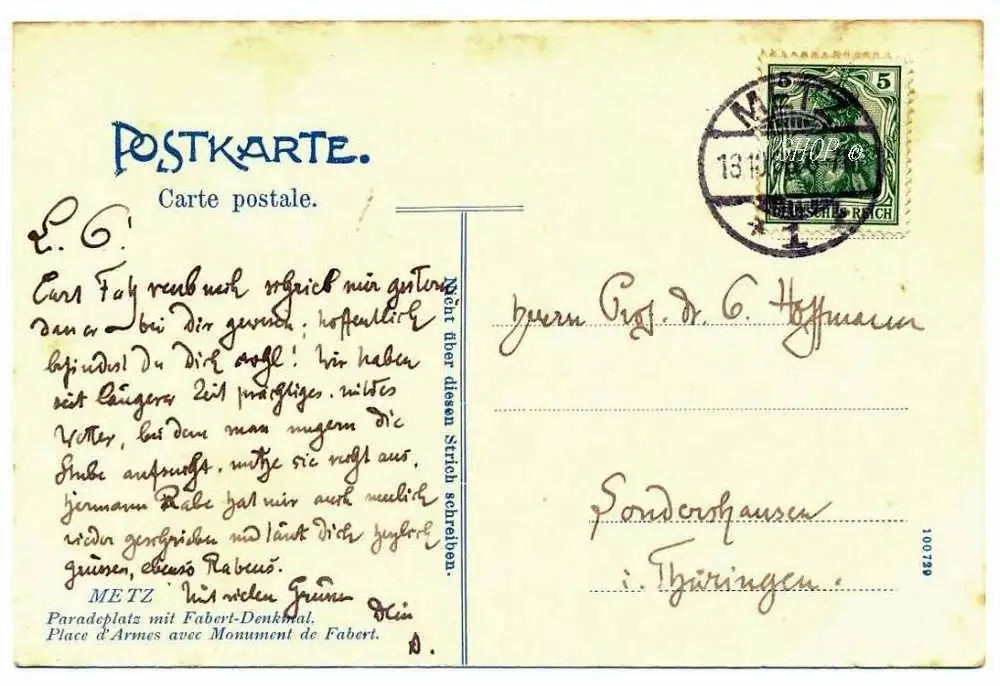 POSTKARTE.
Carte postale.
L. G!
Carl Fahrenbruch schrieb mir gestern
dass er bei Dir gewesen; hoffentlich
befindest Du Dich wohl! Wir haben
seit längerer Zeit prächtiges, mildes
Wetter, bei dem man ungern die
Stube aufsucht, nütze sie recht aus,
Hermann Rabe hat mir auch neulich
wieder geschrieben und lässt Dich herzlich
grüssen, ebenso Rabens.
Mit vielen Grüssen
Dein
A.
METZ
Paradeplatz mit Fabert-Denkmal.
Place d'Armes avec Monument de Fabert.
Nicht über diesen Strich schreiben.
5 5
METZ
13.10.
SHOP ©
DEUTSCHES REICH
* 1
Herrn Prof. Dr. G. Hoffmann
Sondershausen
i. Thüringen.
100729